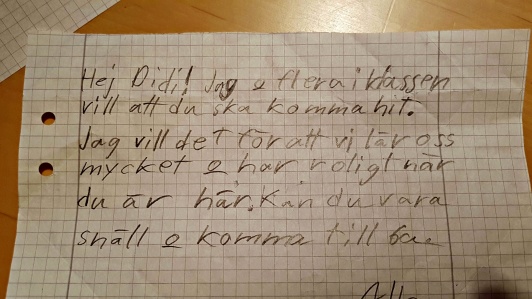 Hej Didi! Jag o flera i klassen
vill att du ska komma hit.
Jag vill det för att vi lär oss
mycket o har roligt när
du är här. Kan du vara
snäll o komma till